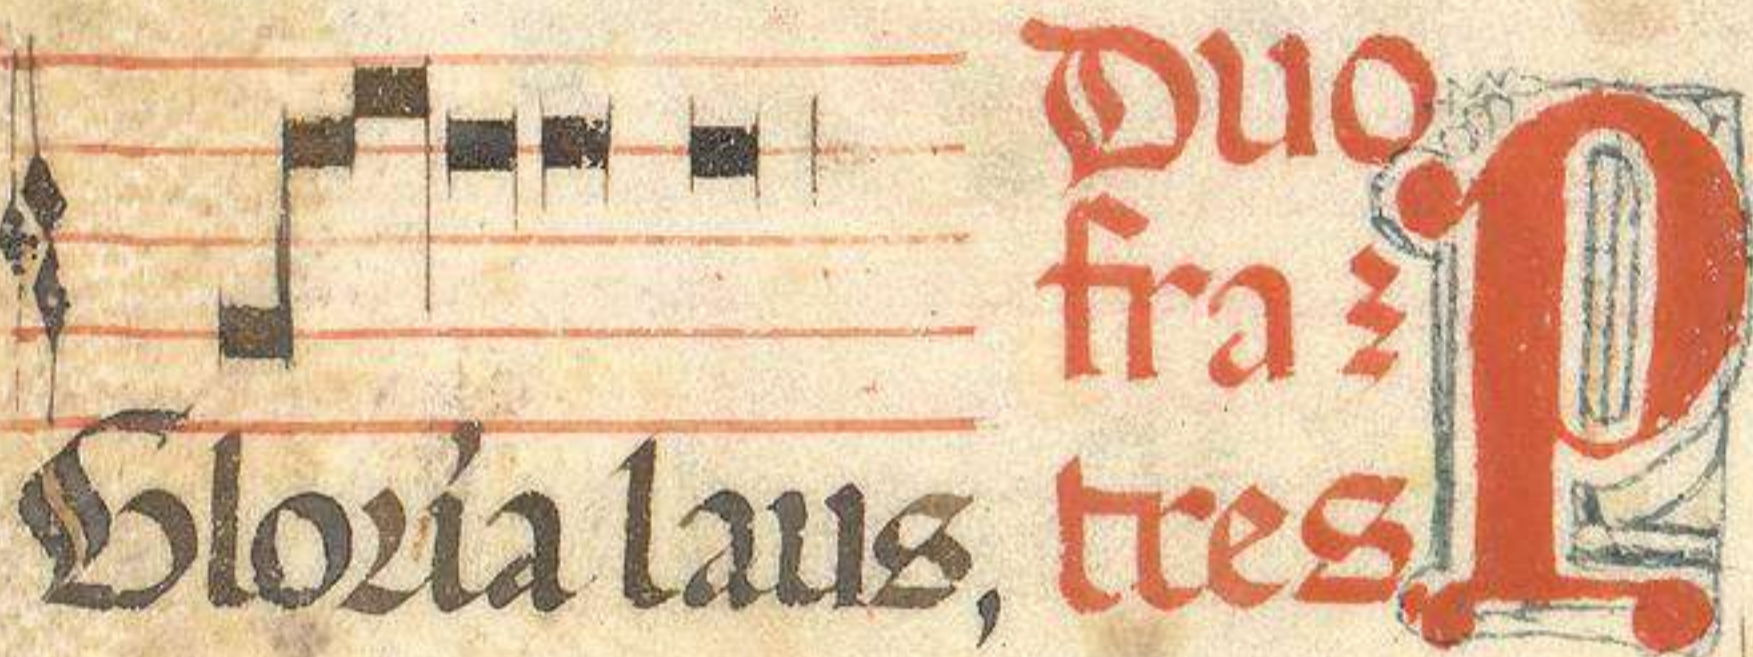 Gloria laus,
Duo
fra
tres
P